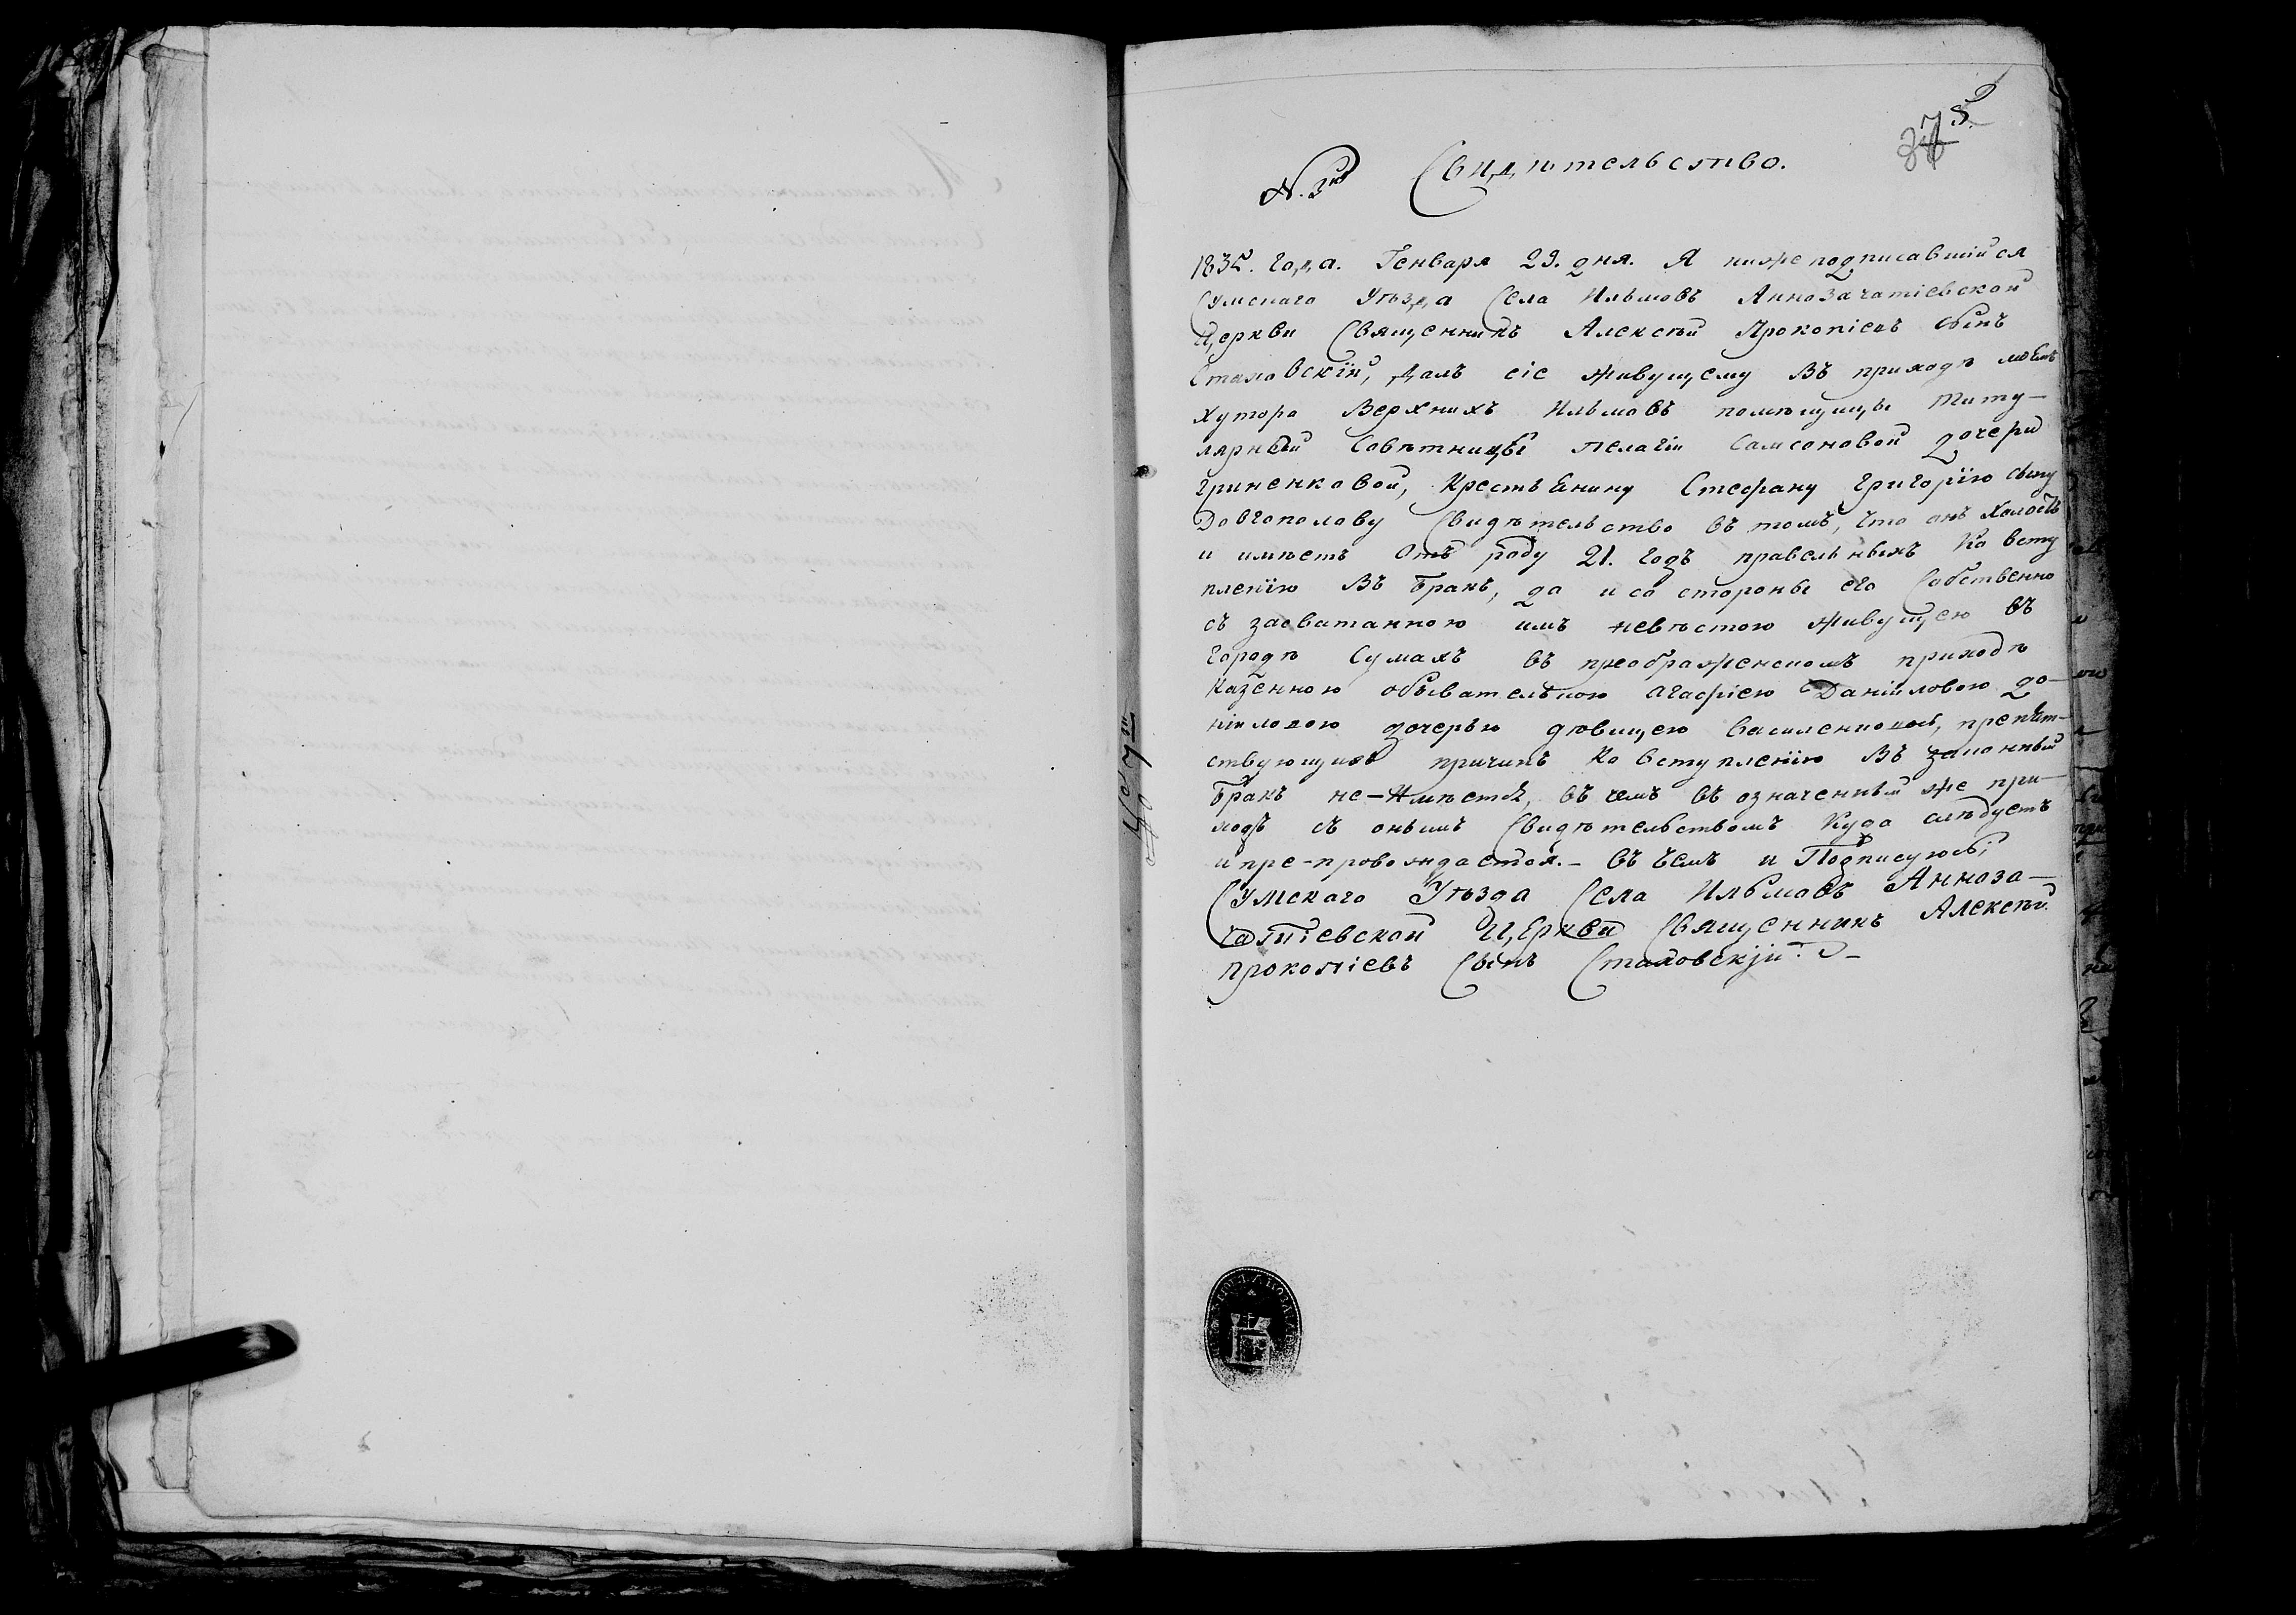 Свидѣтельство.
N. 3й
1835. Года. Генваря 29. дня. Я нижеподписавшийся
Сумскаго Уѣзда Села Ильмовъ Аннозачатіевской
Церкви Священникъ Алексѣй Прокопіевъ сынъ
Стаховскій, далъ сіе живущему въ приходѣ моемъ
хутора Верхнихъ Ильмовъ помѣщицы титу-
лярный Совѣтницы пелагіи Самсоновой дочери
Гриненковой, Крестьенину Стефану Григорію сыну
Довгополову Свидѣтельство въ томъ, что онъ Холостъ
и имѣетъ Отъ роду 21. годъ правельныхъ Ко всту
пленію Въ Бракъ, да и со стороны его Собственно
съ засватанною имъ невѣстою живущею въ
городѣ Сумахъ въ преображенскомъ приходѣ
Казенною обывательною агафіею Даніиловою да-
ніиловою дочерью дѣвицею Василенковой, препят-
ствующихъ причинъ Ко вступленію Въ законный
Бракъ не-Имѣетъ, въ чемъ въ означенный же при-
ходъ съ онымъ Свидѣтельствомъ Куда слѣдуетъ
и пре-провождается.- въ чемъ и Подписуюсь;
Сумскаго Уѣзда Села Ильмовъ Анноза-
чатіевской Церкви Священникъ Алексѣй
прокопіевъ Сынъ Стаховскjй.